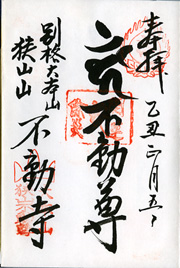 奉拝
乙丑正月五日
不動尊
別格大本山
狭山山
不動寺